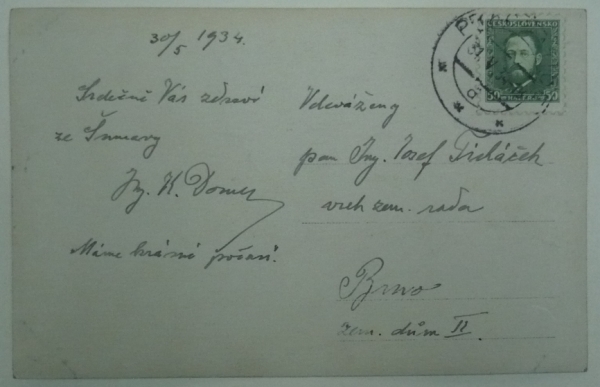 30/5 1934.
Srdečně Vás zdraví
ze Šumavy
Ing. K. Domes
Máme krásné počasí.
Velevážený
pan Ing. Josef
vrch. zem. rada
Brno
zem. dům II.
ČESKOSLOVENSKO
50 50